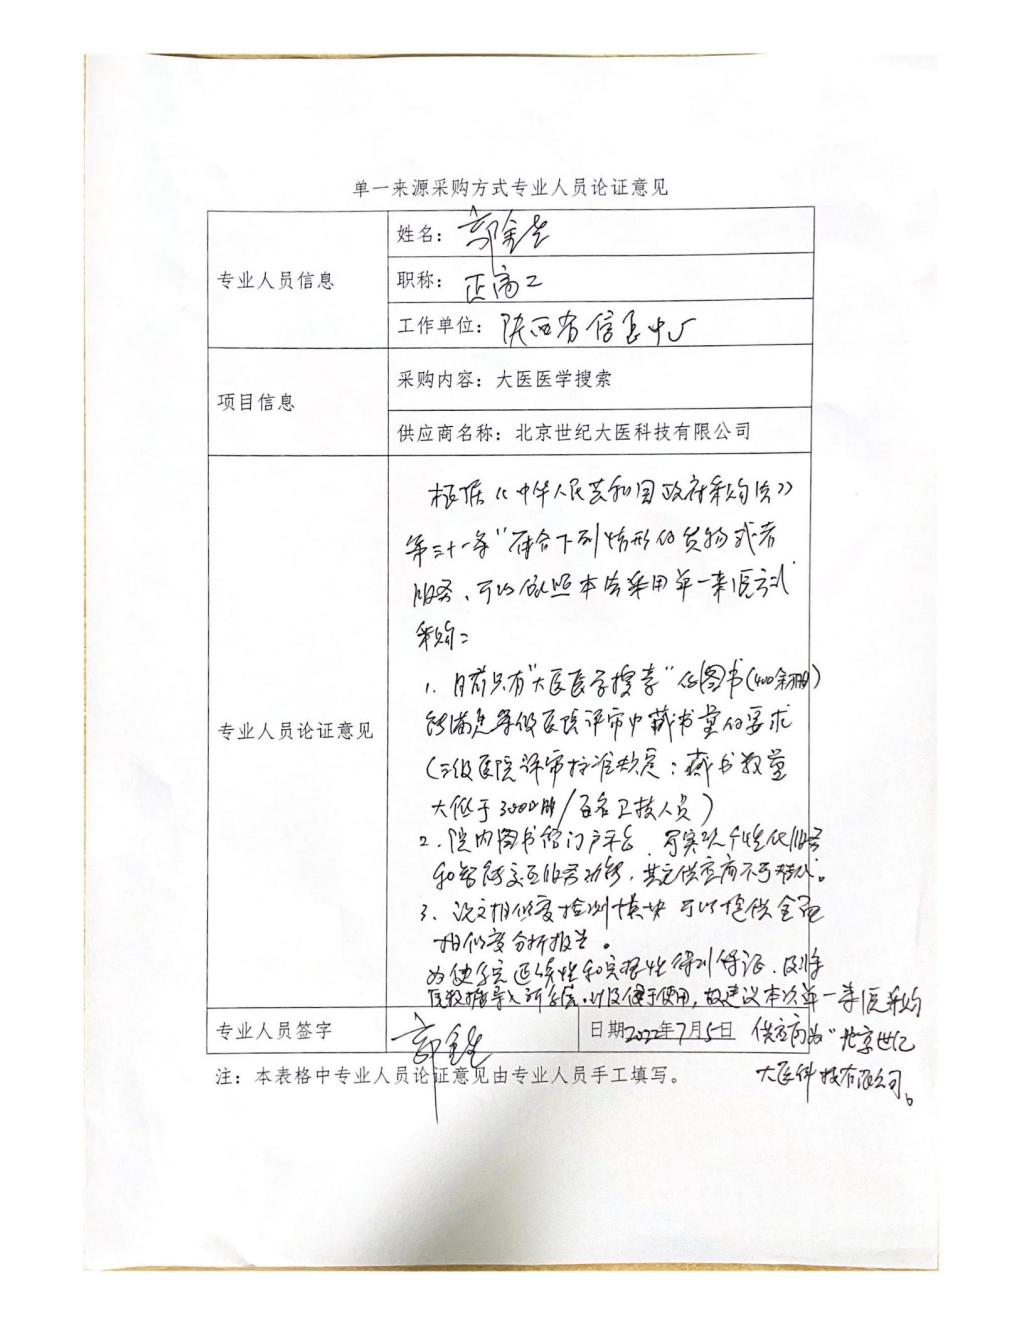 单一来源采购方式专业人员论证意见
专业人员信息
姓名：郭全生
职称：正高工
工作单位：陕西省信息中心
项目信息
采购内容：大医医学搜索
供应商名称：北京世纪大医科技有限公司
专业人员论证意见
根据《中华人民共和国政府采购法》
第三十一条“符合下列情形的货物或者
服务、可以依照本法采用单一来源方式
采购：
1. 目前只有“大医医学搜索”的图书(400余万册)
能满足等级医院评审中藏书量的要求
(三级医院评审标准规定：藏书数量
不低于3000册/百名卫技人员)
2. 院内图书馆门户平台、可实现个性化服务
和智能交互服务功能，其它供应商不可替代。
3、论文相似度检测模块 可以提供全面
相似度分析报告。
为使系统延续性和完整性得到保证、及将
数据导入新系统，以及便于使用，故建议本次单一来源采购
供应商为“北京世纪
大医科技有限公司。
专业人员签字
郭全生
日期2022年7月5日
注：本表格中专业人员论证意见由专业人员手工填写。